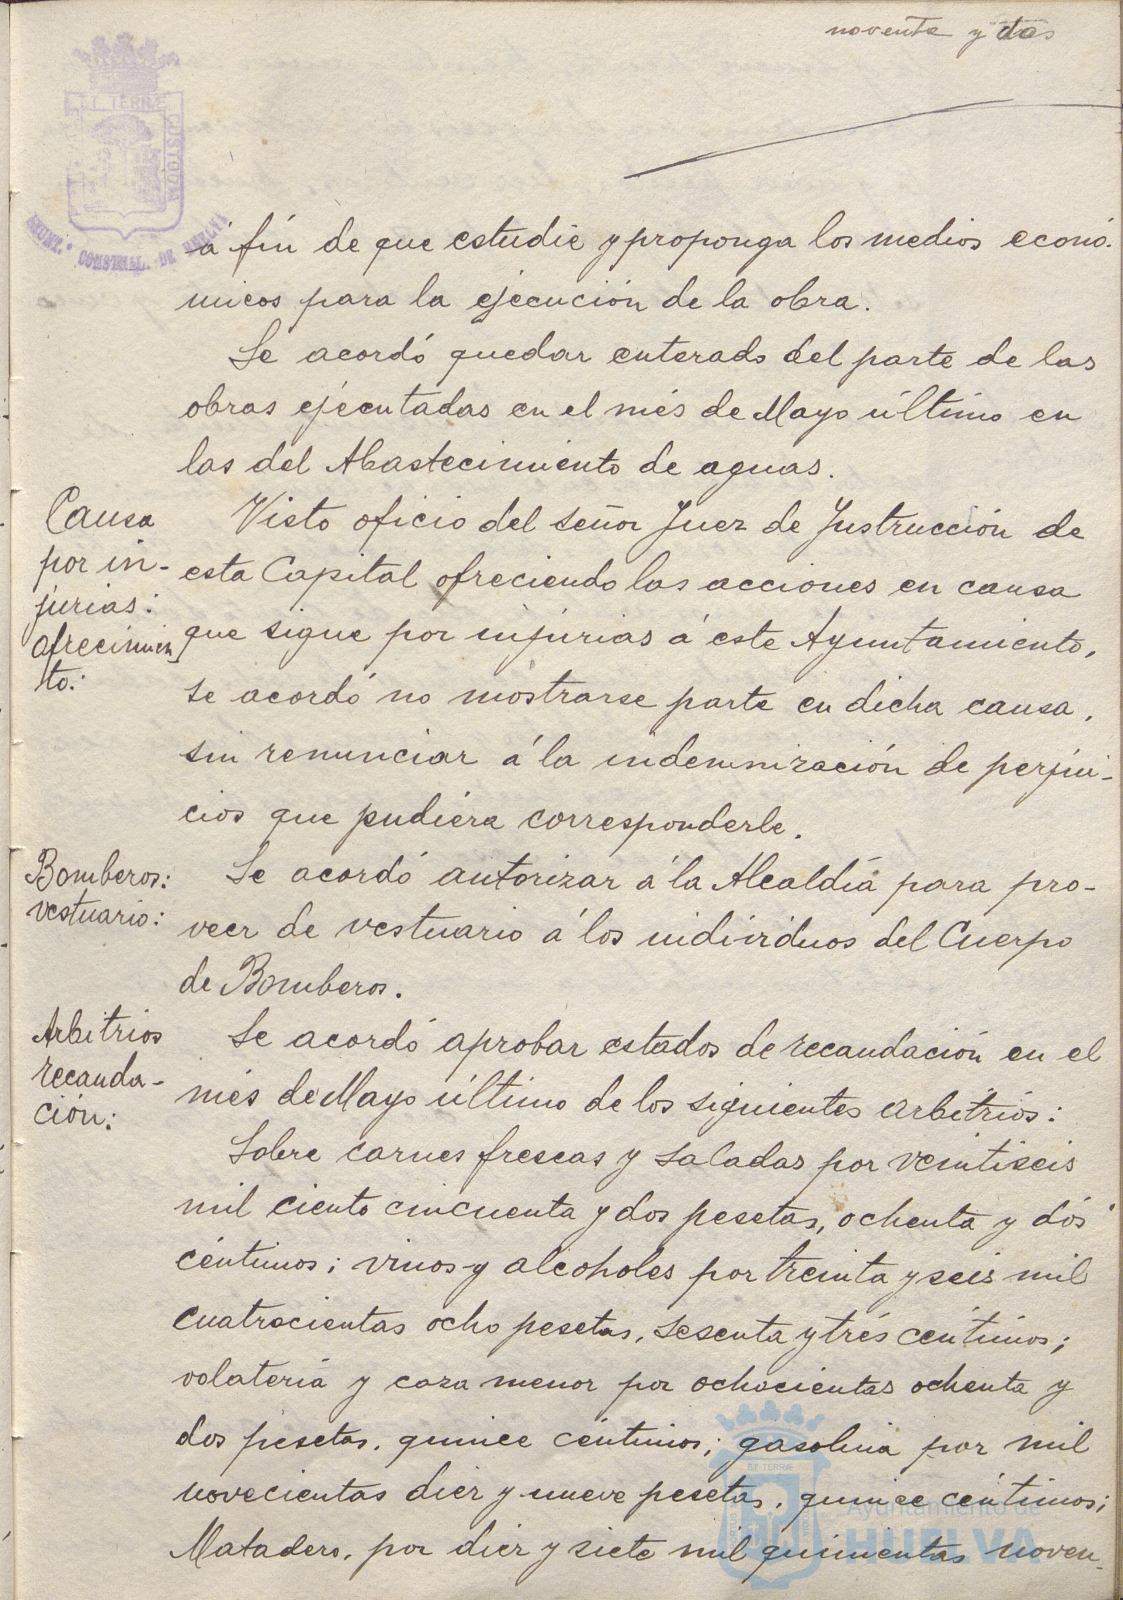 noventa y dos
ET TERRÆ
CUSTODIA
AYUNT. CONSTNAL. DE HUELVA
á fín de que estudie y proponga los medios econó-
micos para la ejécución de la obra.
Se acordó quedar enterado del parte de las
obras ejécutadas en el més de Mayo último en
las del Abastecimiento de aguas.
Causa
por in-
jurias:
ofrecimien
to:
Visto oficio del señor Juez de Instrucción de
esta Capital ofreciendo las acciones en causa
que sigue por injurias á este Ayuntamiento,
se acordó no móstrarse parte en dicha causa,
sin renunciar á la indemnización de perjui-
cios que pudiera corresponderle.
Bomberos:
vestuario:
Se acordó autorizar á la Alcaldía para pro-
veer de vestuario á los individuos del Cuerpo
de Bomberos.
Arbitrios
recauda-
ción:
Se acordó aprobar estados de recaudación en el
més de Mayo último de los siguientes arbitrios:
Sobre carnes frescas y saladas por veintiseis
mil ciento cincuenta y dos pesetas, ochenta y dós
céntimos; vinos y alcoholes por treinta y seis mil
cuatrocientas ocho pesetas, sesenta y trés céntimos;
volatería y caza menor por ochocientas ochenta y
dos pesetas, quince céntimos; gasolina por mil
novecientas diez y nueve pesetas, quince céntimos;
Matadero, por diez y siete mil quinientas noven-
ET TERRÆ
Ayuntamiento de
HUELVA